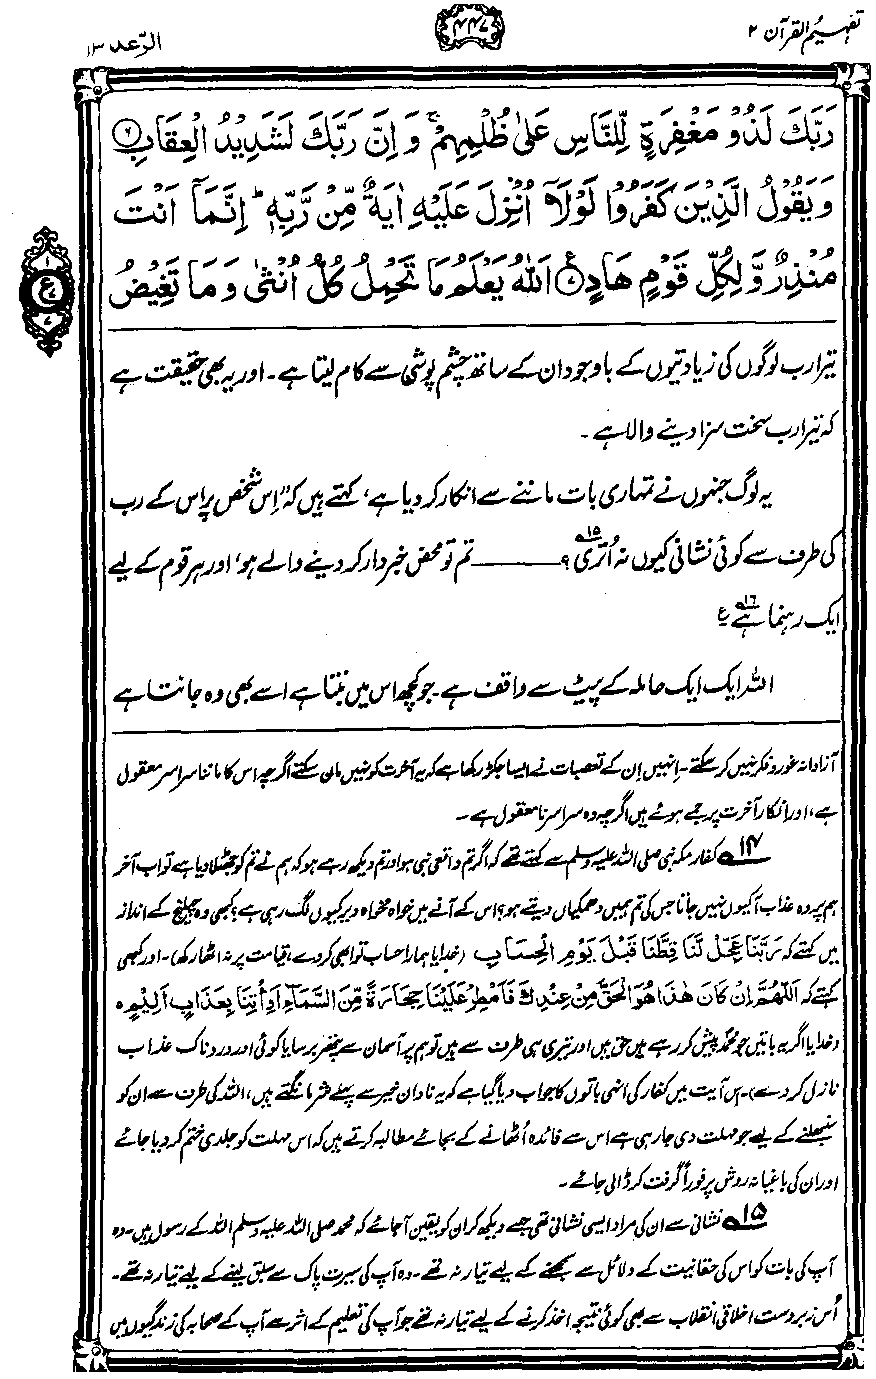 تفہیم القرآن ۲
۴۴۷
الرّعد ۱۳
رَبَّكَ لَذُوْ مَغْفِرَةٍ لِّلنَّاسِ عَلٰى ظُلْمِهِمْ ۚ وَ اِنَّ رَبَّكَ لَشَدِيْدُ الْعِقَابِ ﴿۶﴾
وَ يَقُوْلُ الَّذِيْنَ كَفَرُوْا لَوْلَاۤ اُنْزِلَ عَلَيْهِ اٰيَةٌ مِّنْ رَّبِّهٖ ؕ اِنَّمَاۤ اَنْتَ
مُنْذِرٌ وَّ لِكُلِّ قَوْمٍ هَادٍ ﴿۷﴾ ع اَللّٰهُ يَعْلَمُ مَا تَحْمِلُ كُلُّ اُنْثٰى وَ مَا تَغِيْضُ
۱
ع
۷
۷
تیرا رب لوگوں کی زیادتیوں کے باوجود ان کے ساتھ چشم پوشی سے کام لیتا ہے۔ اور یہ بھی حقیقت ہے
کہ تیرا رب سخت سزا دینے والا ہے۔
یہ لوگ جنہوں نے تمہاری بات ماننے سے انکار کر دیا ہے، کہتے ہیں کہ ”اِس شخص پر اِس کے رب
کی طرف سے کوئی نشانی کیوں نہ اُتری۱۵؟ ——— تم تو محض خبردار کر دینے والے ہو، اور ہر قوم کے لیے
ایک رہنما ہے۱۶ ع
اللہ ایک ایک حاملہ کے پیٹ سے واقف ہے۔ جو کچھ اس میں بنتا ہے اسے بھی وہ جانتا ہے
آزادانہ غور و فکر نہیں کر سکتے۔ اِنہیں اِن کے تعصبات نے ایسا جکڑ رکھا ہے کہ یہ آخرت کو نہیں مان سکتے اگرچہ اس کا ماننا سراسر معقول
ہے، اور انکارِ آخرت پر جمے ہوئے ہیں اگرچہ وہ سراسر نامعقول ہے۔
۱۴ کفارِ مکہ نبی صلی اللہ علیہ وسلم سے کہتے تھے کہ اگر تم واقعی نبی ہو اور تم دیکھ رہے ہو کہ ہم نے تم کو جھٹلا دیا ہے تو اب آخر
ہم پر وہ عذاب آ کیوں نہیں جاتا جس کی تم ہمیں دھمکیاں دیتے ہو؟ اس کے آنے میں خواہ مخواہ دیر کیوں لگ رہی ہے؟ کبھی وہ چیلنج کے انداز
میں کہتے کہ رَبَّنَا عَجِّلْ لَّنَا قِطَّنَا قَبْلَ يَوْمِ الْحِسَابِ (خدایا ہمارا حساب تو ابھی کر دے، قیامت پر نہ اٹھا رکھ)۔ اور کبھی
کہتے کہ اَللّٰهُمَّ اِنْ كَانَ هٰذَا هُوَ الْحَقَّ مِنْ عِنْدِكَ فَاَمْطِرْ عَلَيْنَا حِجَارَةً مِّنَ السَّمَآءِ اَوِ ائْتِنَا بِعَذَابٍ اَلِيْمٍ
(خدایا اگر یہ باتیں جو محمدؐ پیش کر رہے ہیں حق ہیں اور تیری ہی طرف سے ہیں تو ہم پر آسمان سے پتھر برسا یا کوئی اور دردناک عذاب
نازل کر دے)۔ اس آیت میں کفار کی انہی باتوں کا جواب دیا گیا ہے کہ یہ نادان خیر سے پہلے شر مانگتے ہیں، اللہ کی طرف سے ان کو
سنبھلنے کے لیے جو مہلت دی جا رہی ہے اس سے فائدہ اُٹھانے کے بجائے مطالبہ کرتے ہیں کہ اس مہلت کو جلدی ختم کر دیا جائے
اور ان کی باغیانہ روش پر فوراً گرفت کر ڈالی جائے۔
۱۵ نشانی سے ان کی مراد ایسی نشانی تھی جسے دیکھ کر ان کو یقین آ جائے کہ محمد صلی اللہ علیہ وسلم اللہ کے رسول ہیں۔ وہ
آپ کی بات کو اس کی حقانیت کے دلائل سے سمجھنے کے لیے تیار نہ تھے۔ وہ آپ کی سیرت پاک سے سبق لینے کے لیے تیار نہ تھے۔
اُس زبردست اخلاقی انقلاب سے بھی کوئی نتیجہ اخذ کرنے کے لیے تیار نہ تھے جو آپ کی تعلیم کے اثر سے آپ کے صحابہ کی زندگیوں میں